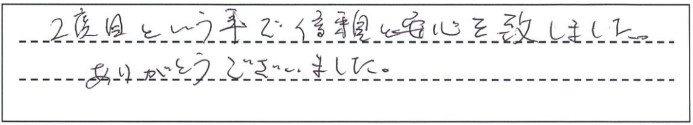 2度目という事で信頼と安心を致しました。
ありがとうございました。